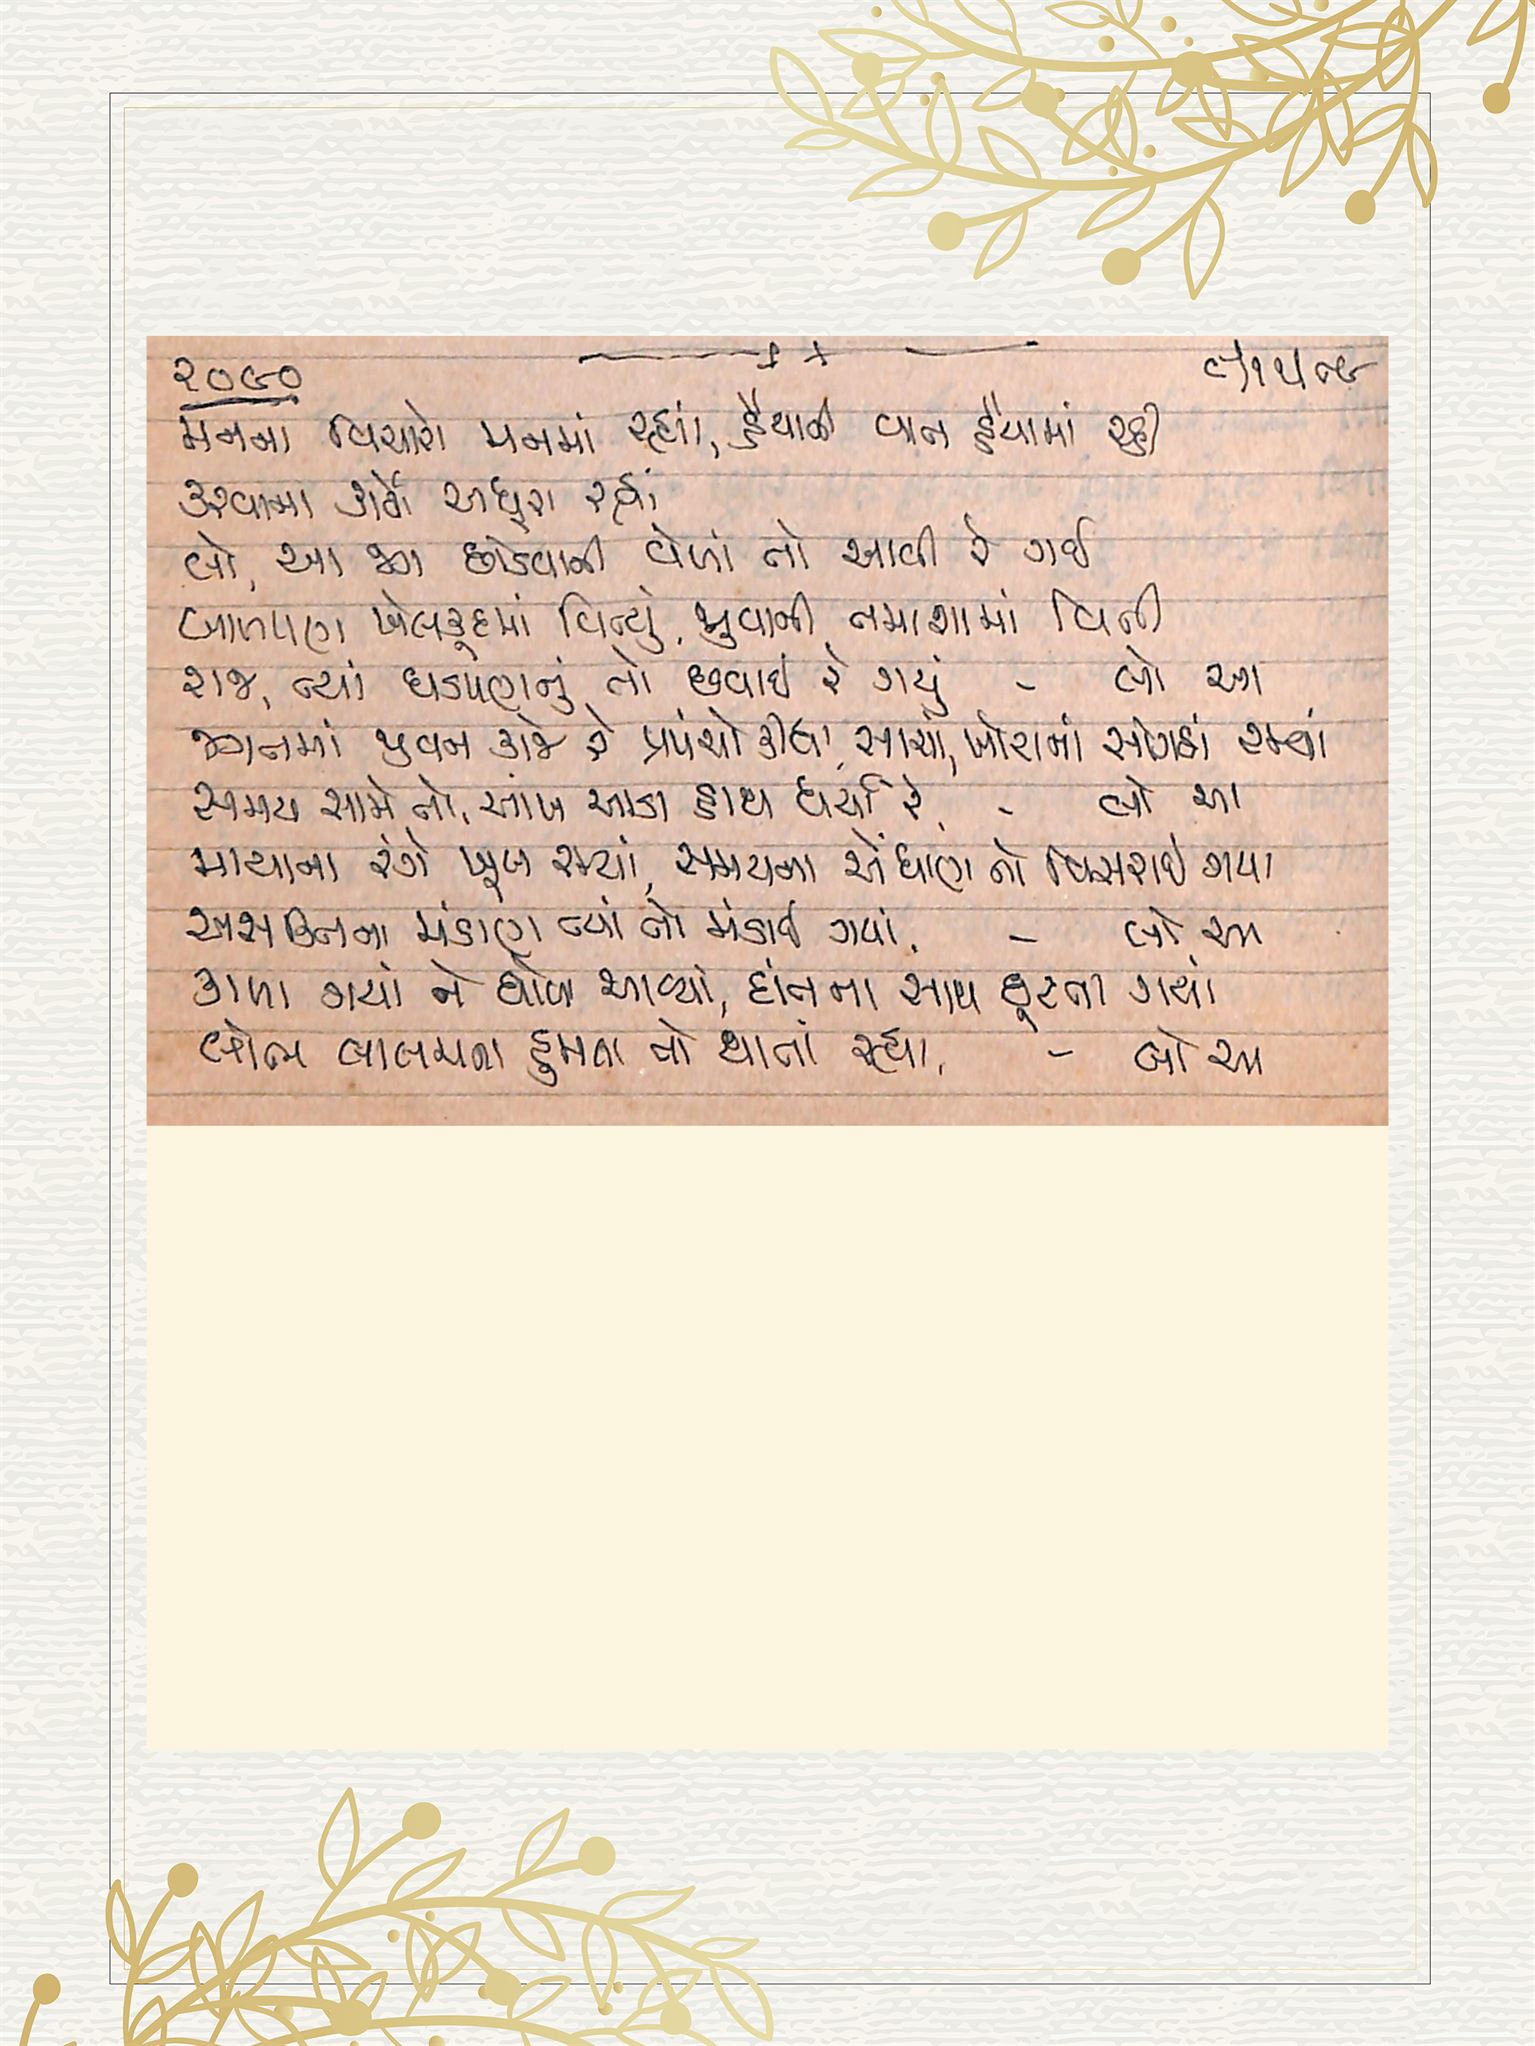 ૨૦૯૦
મનના વિચારો મનમાં રહ્યાં, હૈયાની વાત હૈયામાં રહી
કરવાના કાર્યો અધુરા રહ્યાં
લો, આ જગ છોડવાની વેળાં તો આવી રે ગઈ
બાળપણ ખેલકૂદમાં વિત્યું, જુવાની તમાશામાં વિતી
રાજ, ત્યાં ઘડપણનું તો છવાઈ રે ગયું - લો આ
જગતમાં જીવન કાજે રે પ્રપંચો કીધાં સાચાં, ખોટાનાં સોગઠાં રમ્યાં
સમય સામે તો, આંખ આડા હાથ ધર્યા રે - લો આ
માયાના રંગે ખૂબ રમ્યાં, સમયના એંધાણ તો વિસરાઈ ગયા
અશક્તિના મંડાણ ત્યાં તો મંડાઈ ગયાં. - લો આ
કાળા ગયાં ને ધોળા આવ્યાં, દાંતના સાથ છૂટતા ગયાં
લોભ લાલચના હુમલા તો થાતાં રહ્યા. - લો આ